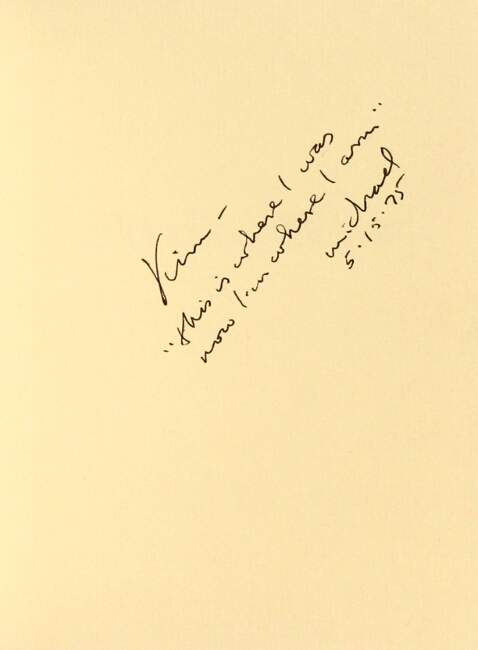 Kim —
"this is where I was
now I'm where I am"
michael
5.15.75